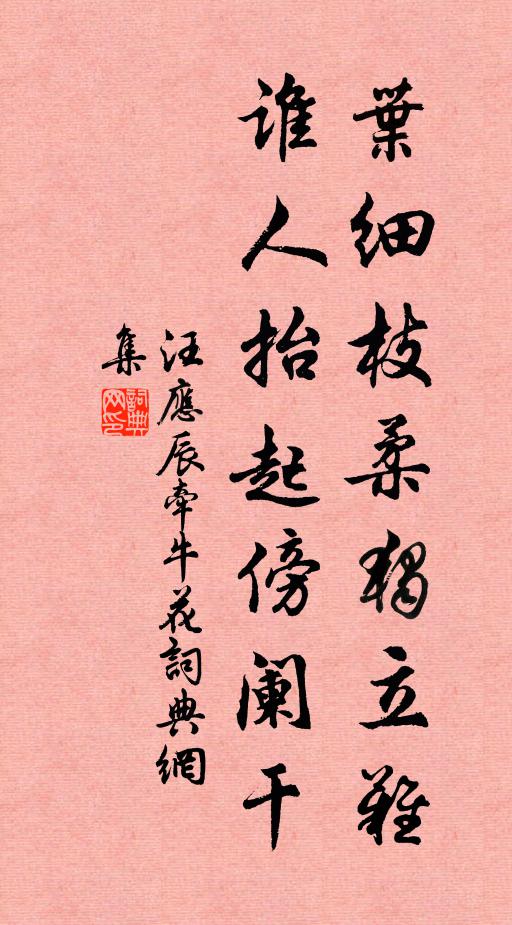 葉細枝柔獨立難
誰人抬起傍闌干
汪應辰牽牛花詞典網
集
詞典網印